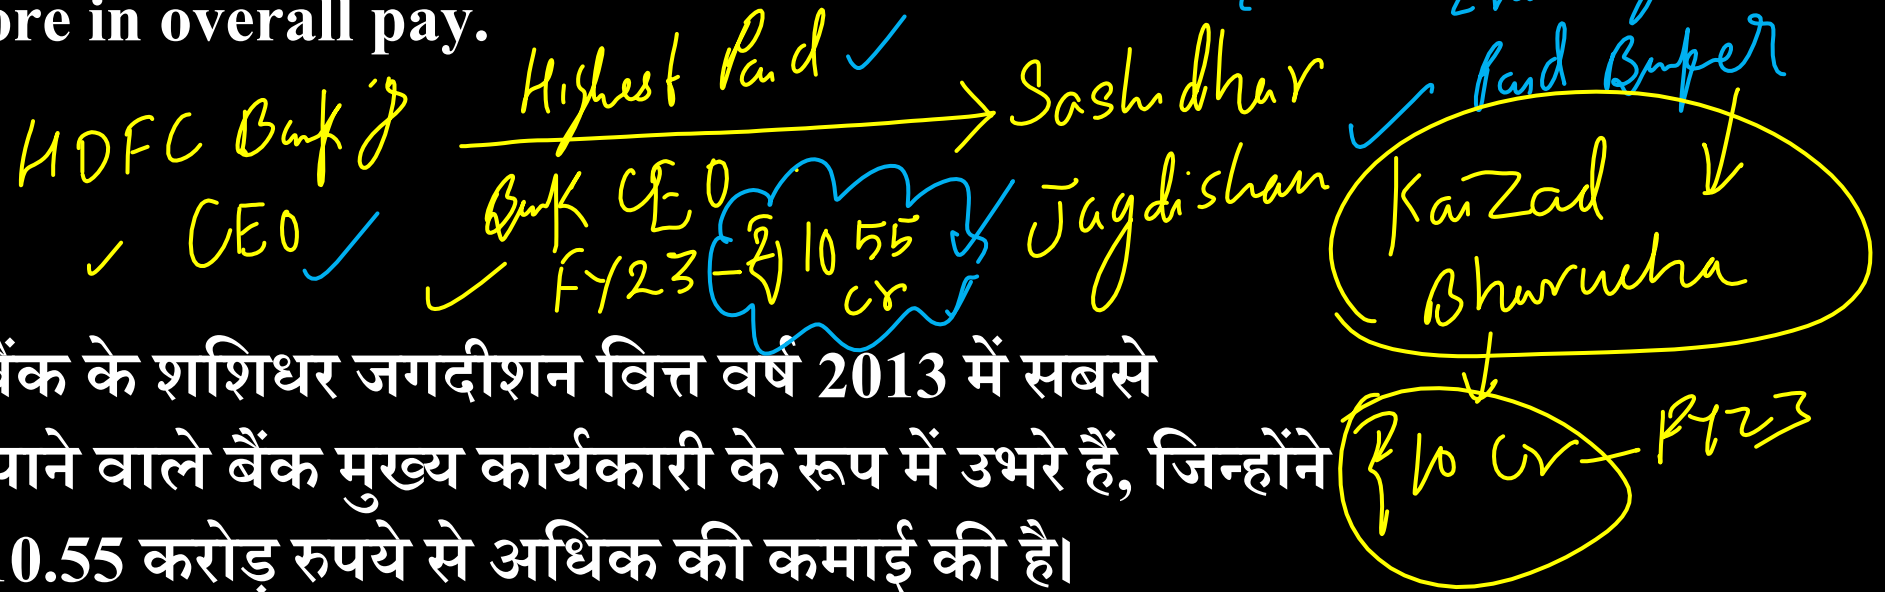 ore in overall pay.
Highest Paid
HDFC Bank's
CEO
Bank CEO
FY23 - ₹ 10 55
cr
Sashidhar
Jagdishan
Paid Banker
Kaizad
Bharucha
₹ 10 Cr - FY23
बैंक के शशिधर जगदीशन वित्त वर्ष 2013 में सबसे
पाने वाले बैंक मुख्य कार्यकारी के रूप में उभरे हैं, जिन्होंने
10.55 करोड़ रुपये से अधिक की कमाई की है।